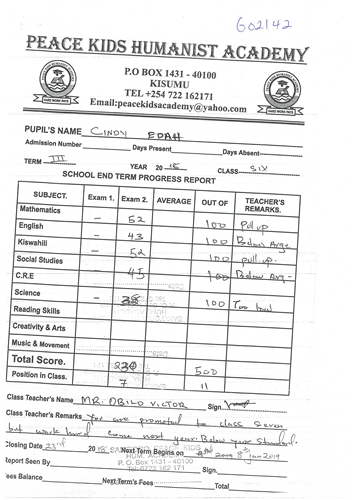 602142
PEACE KIDS HUMANIST ACADEMY
P.O BOX 1431 - 40100
KISUMU
TEL +254 722 162171
Email:peacekidsacademy@yahoo.com
HARD WORK PAYS HARD WORK PAYS
PUPIL'S NAME CINDY EDAH
Admission Number Days Present Days Absent
TERM III YEAR 2018 CLASS SIX
SCHOOL END TERM PROGRESS REPORT
SUBJECT. Exam 1. Exam 2. AVERAGE OUT OF TEACHER'S REMARKS.
Mathematics - 52 100 Pull up
English - 43 100 Below Avge
Kiswahili - 52 100 pull up.
Social Studies
C.R.E 45 100 Below Avg -
Science - 38 100 Too low
Reading Skills
Creativity & Arts
Music & Movement
Total Score. 230 500
Position in Class. 7 11
Class Teacher's Name MR. OBILO VICTOR Sign.
Class Teacher's Remarks You are promoted to class seven
but work hard come next year. Below your standard.
Closing Date 23rd 2018 Next Term Begins on 8th Jan 2019
Report Seen By P. O. Box 1431 - 40100 Sign
Tel 0722 162 171
Fees Balance Next-Term's Fees Total